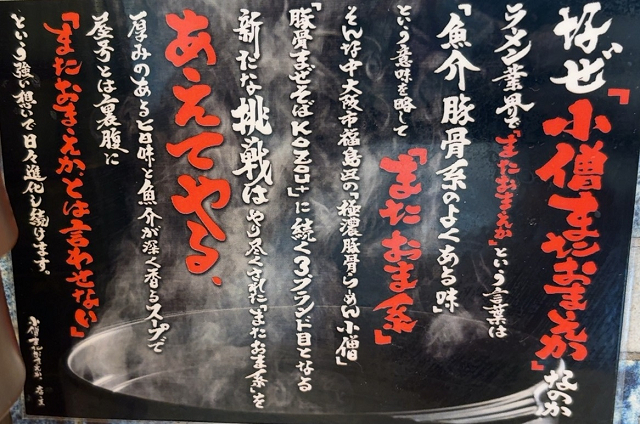 なぜ「小僧またおまえか」なのか
ラーメン業界で「またおまえか」という言葉は
「魚介豚骨系のよくある味」
という意味を略して「またおま系」
そんな中大阪市福島区の「極濃豚骨らーめん小僧」
「豚骨まぜそばKOZOU+」に続く3ブランド目となる
新たな挑戦はやり尽くされた「またおま系」を
あえてやる、
厚みのある旨味と魚介が深く香るスープで
屋号とは裏腹に
「またおまえか、とは言わせない」
という強い想いで日々進化し続けます。
小僧またおまえか 店主